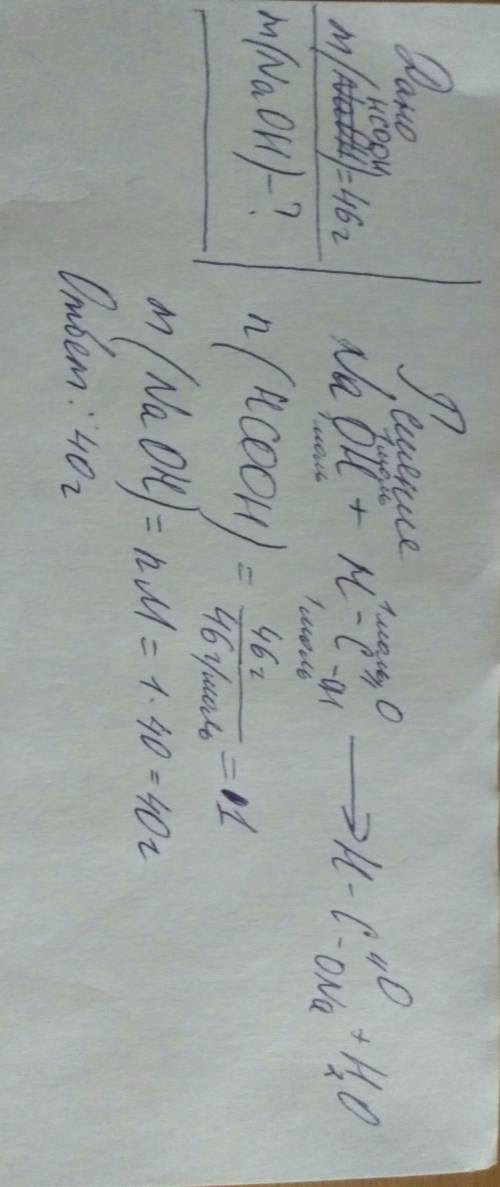 Дано
HCOOH
m(NaOH)=46г
m(NaOH)-?
Решение
1моль 1моль O
NaOH + H-C-OH ⟶ H-C-ONa + H₂O
1моль 1моль
n(HCOOH) = 46г / 46г/моль = 1
m(NaOH) = nM = 1·40 = 40г
Ответ: 40г